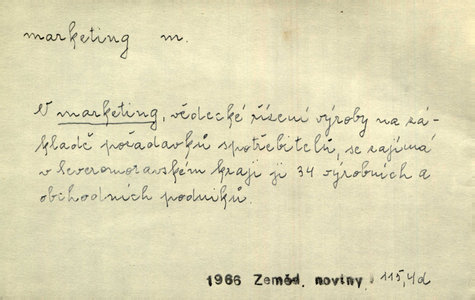 marketing m.
O marketing, vědecké řízení výroby na zá-
kladě požadavků spotřebitelů, se zajímá
v Severomoravském kraji již 34 výrobních a
obchodních podniků.
1966 Zeměd. noviny 115,4d